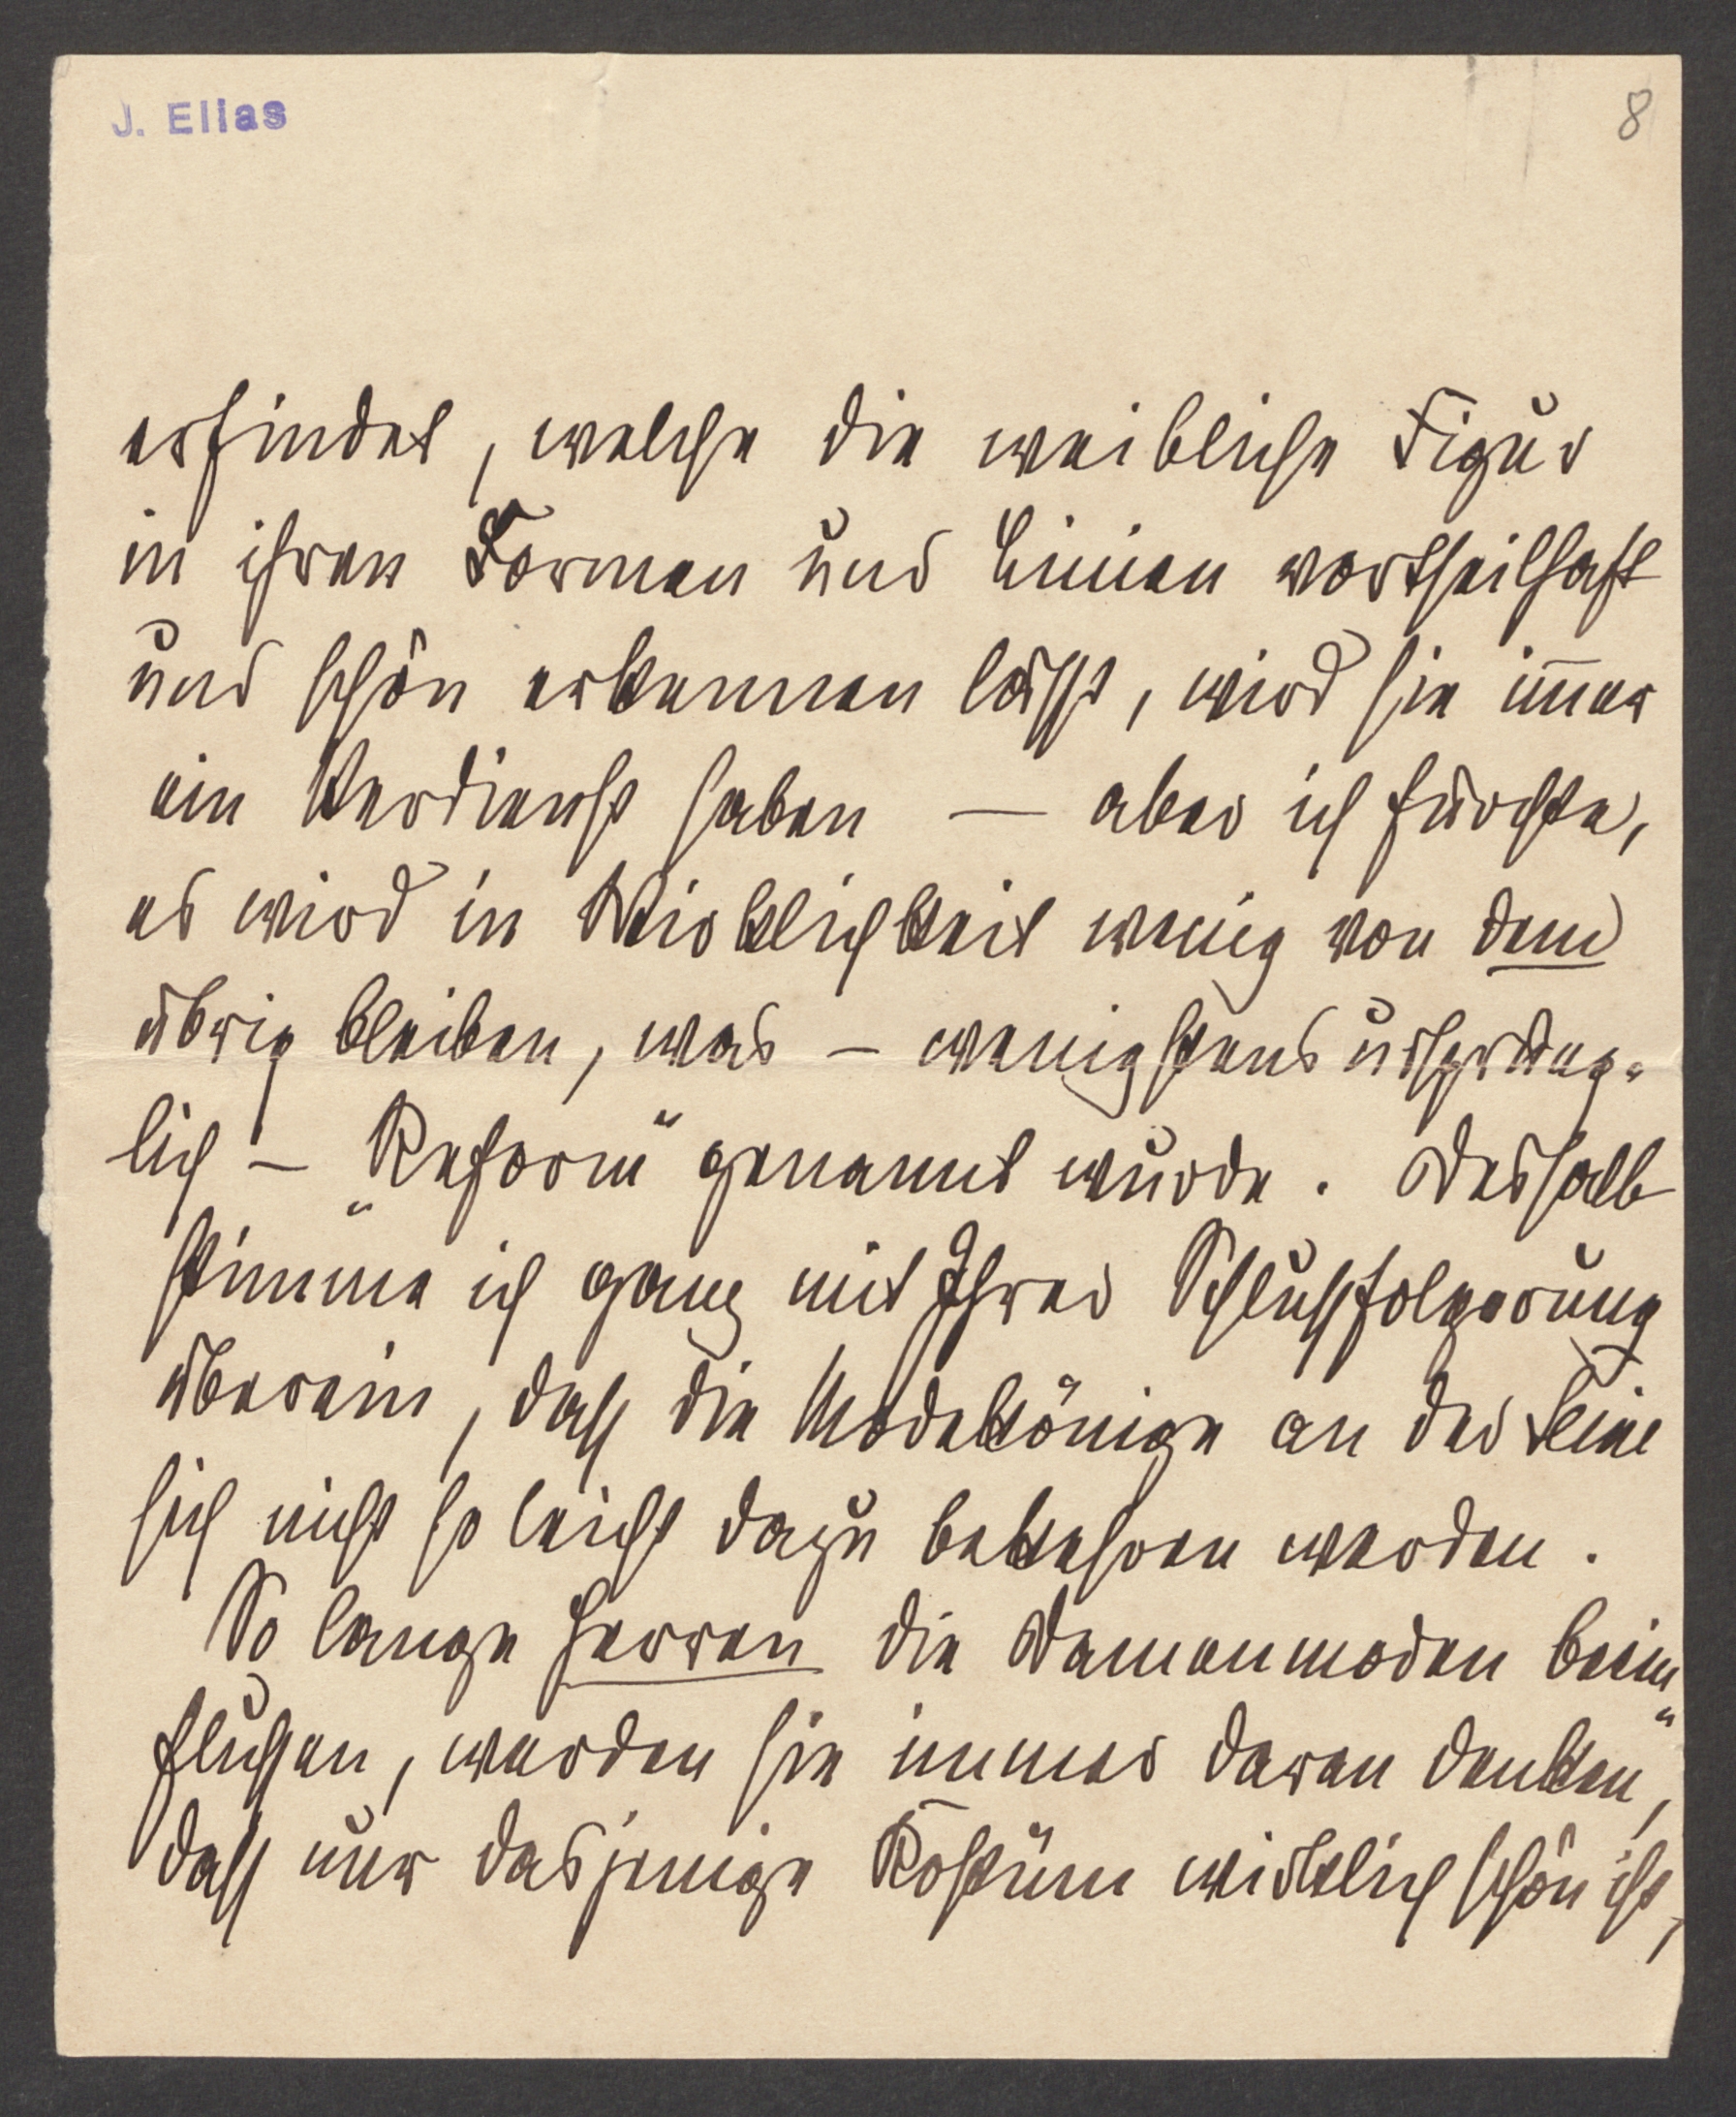 J. Elias
8
erfindet, welche die weibliche Figur
in ihren Formen und Linien vortheilhaft
und schön erkennen lässt, wird sie im̄er
ein Verdienst haben — aber ich fürchte,
es wird in Wirklichkeit wenig von dem
übrig bleiben, was — wenigstens ursprüng-
lich — „Reform“ genannt wurde. Deshalb
stimme ich ganz mit Ihrer Schlußfolgerung
überein, daß die Modekönige an der Seine
sich nicht so leicht dazu bekehren werden.
So lange Herren die Damenmoden bein-
flußen, werden sie immer daran denken,
daß nur dasjenige Kostüm wirklich schön ist,